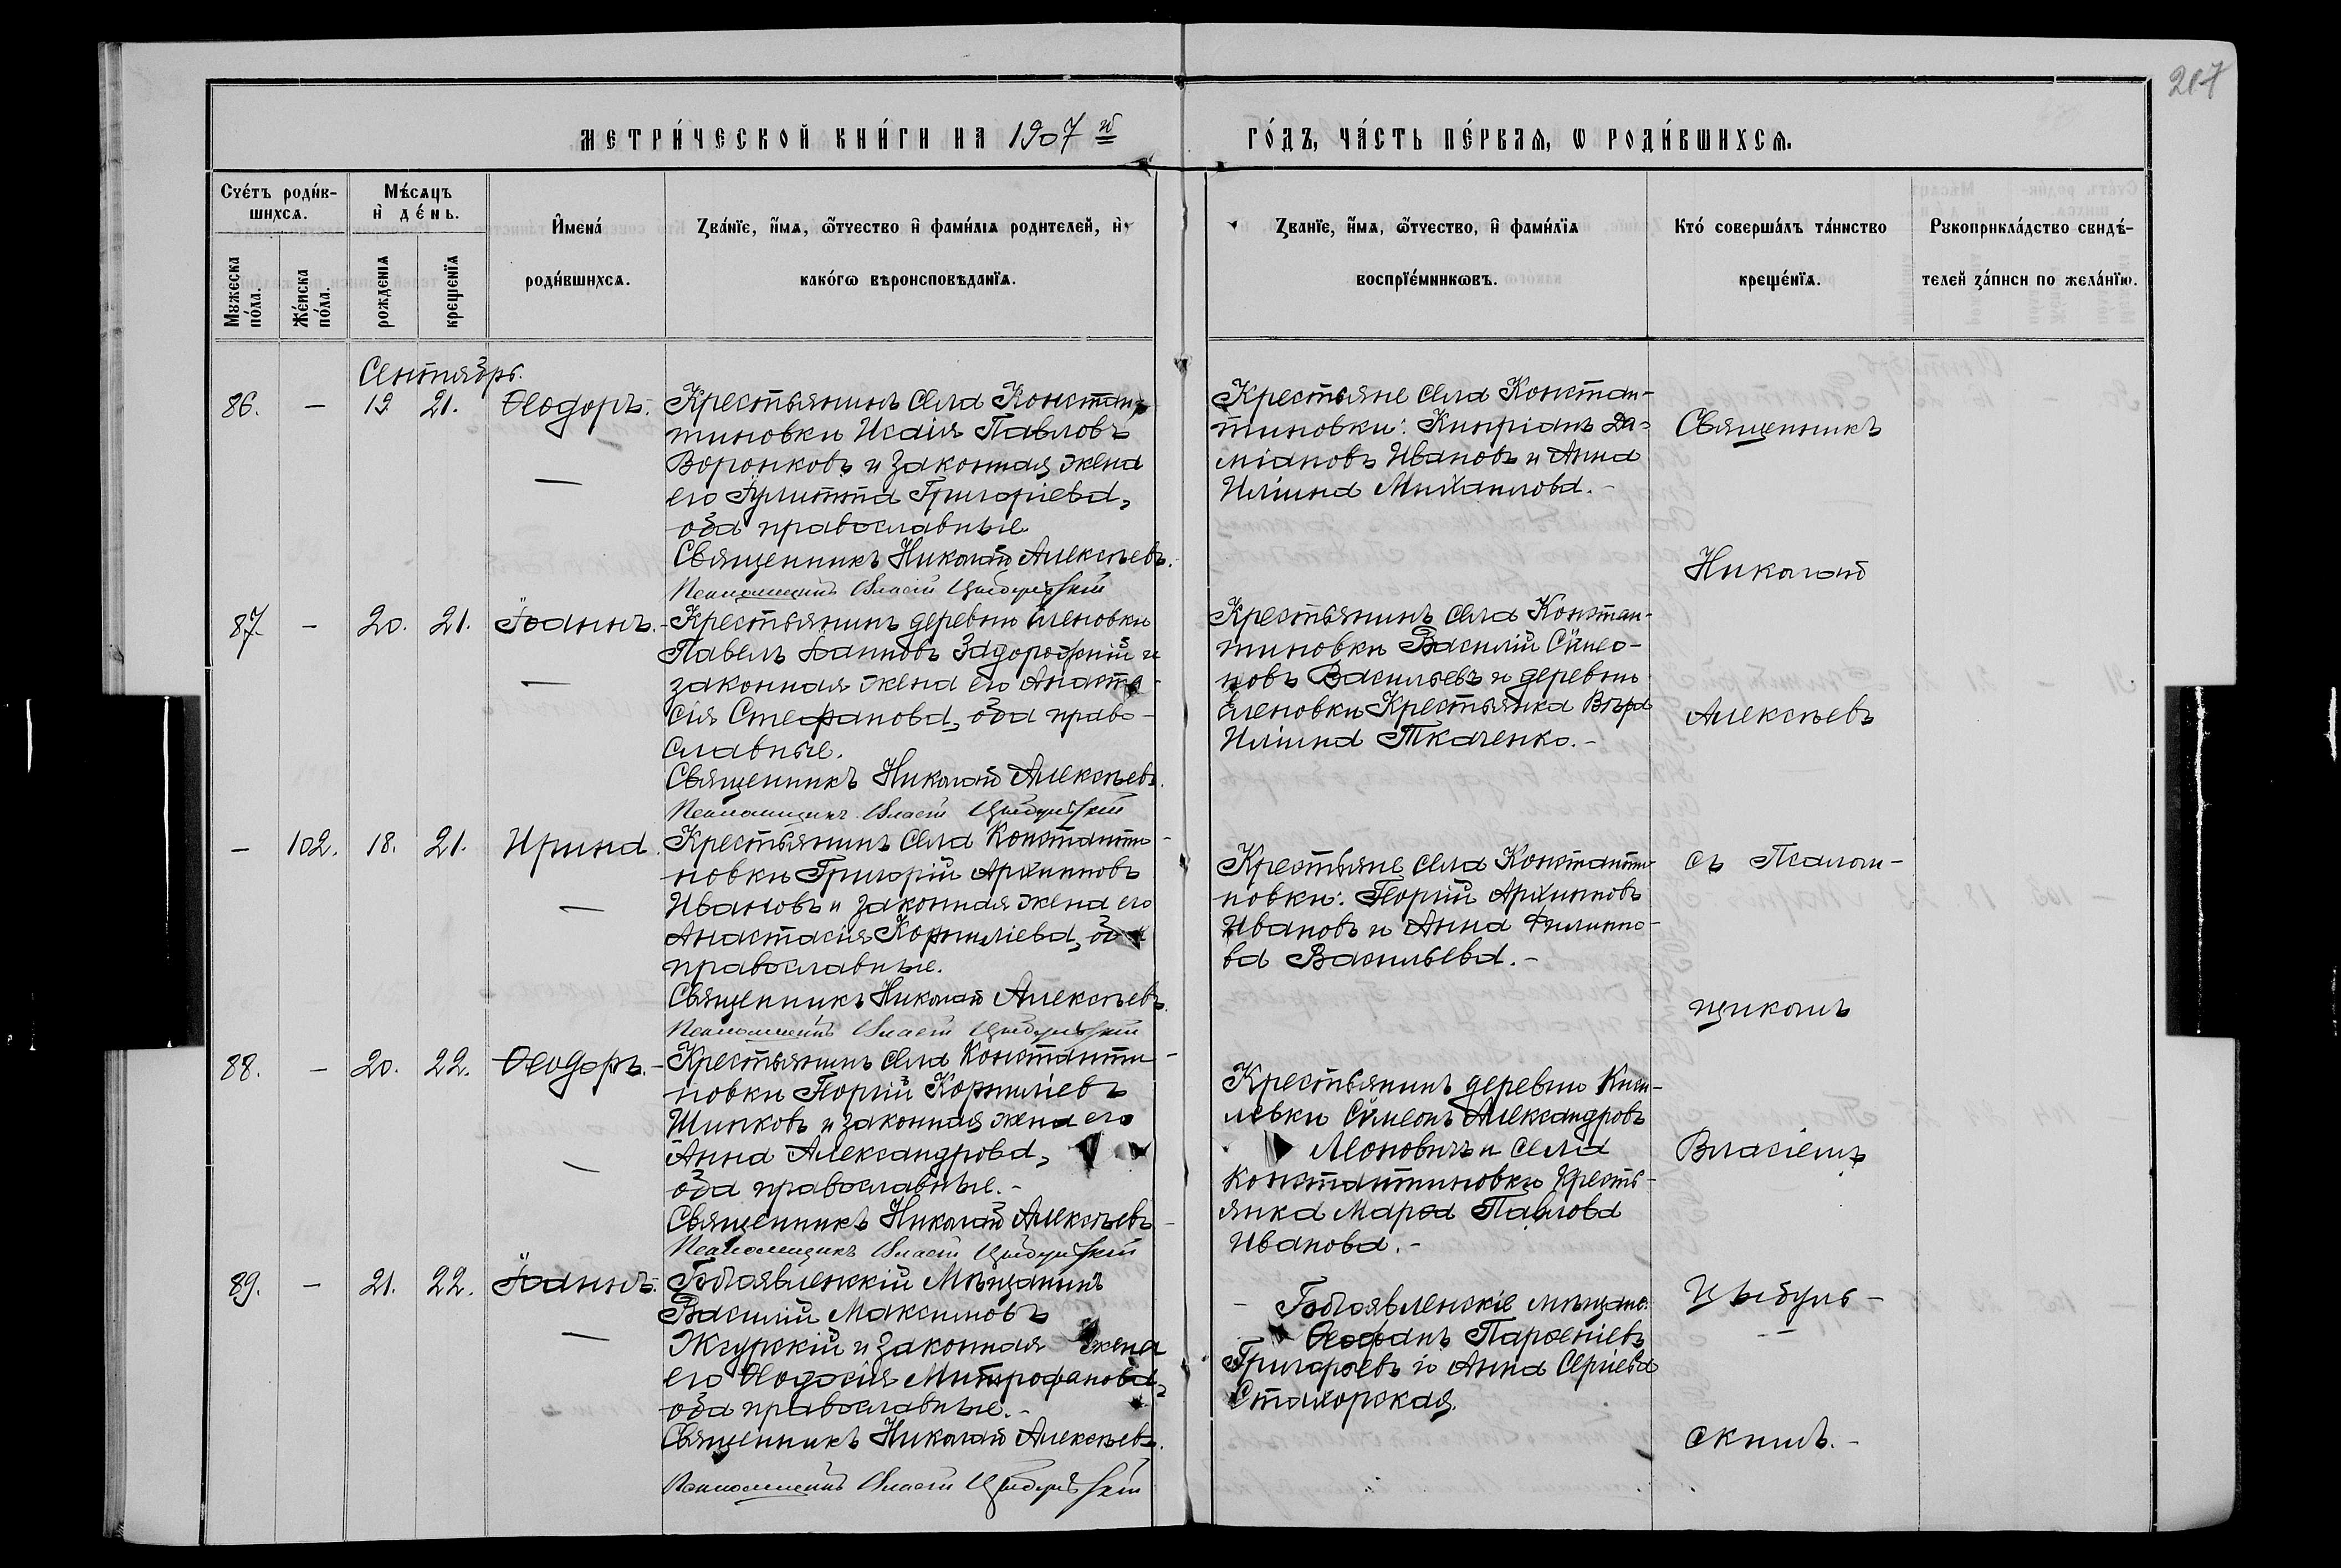 217
МЕТРИ́ЧЕСКОЙ КНИ́ГИ НА 1907 й ГО́ДЪ, ЧА́СТЬ ПЕ́РВАЯ, Ѡ РОДИ́ВШИХСЯ.
Сче́тъ роди́в-
шихся.
Мꙋжеска по́ла.
Же́нска по́ла.
Мѣ́сяцъ
и҆ де́нь.
рожденїя
крещенїя
И҆мена́
роди́вшихся.
Зва́нїе, и҆́мя, ѻ҆́тчество и҆ фами́лїя родителей, и҆
како́гѡ вѣроисповѣданїя.
Званїе, и҆́мя, ѻ҆́тчество, и҆ фами́лїя
воспрїе́мникѡвъ.
Кто́ соверша́лъ та́инство
креще́нїя.
Рꙋкоприкла́дство свидѣ́-
телей за́писи по жела́нїю.
Сентябрь.
86. — 19 21. Ѳеодоръ.
Крестьянинъ села Констан-
тиновки Исаія Павловъ
Воронковъ и законная жена
его Іулитта Григоріева,
оба православные
Священникъ Николай Алексѣевъ.
Псаломщикъ Власій Цыбульскій
Крестьяне села Констан-
тиновки: Кипріанъ Да-
міановъ Ивановъ и Анна
Иліина Михаилова.-
87. — 20. 21. Іоаннъ.
Крестьянинъ деревни Еленовки
Павелъ Іоанновъ Задорожній и
законная жена его Анаста-
сія Стефанова, оба право-
славные.
Священникъ Николай Алексѣевъ.
Псаломщикъ Власій Цыбульскій
Крестьянинъ села Констан-
тиновки Василій Сѵмео-
новъ Васильевъ и деревни
Еленовки Крестьянка Вѣра
Иліина Ткаченко.-
— 102. 18. 21. Ирина.
Крестьянинъ села Константи-
новки Григорій Архиповъ
Ивановъ и законная жена его
Анастасія Корниліева, оба
православные.
Священникъ Николай Алексѣевъ.
Псаломщикъ Власій Цыбульскій
Крестьяне села Константи-
новки: Георгій Архиповъ
Ивановъ и Анна Филиппо-
ва Васильева.-
88. — 20. 22. Ѳеодоръ.
Крестьянинъ села Константи-
новки Георгій Корниліевъ
Шинковъ и законная жена его
Анна Александрова,
оба православные.-
Священникъ Николай Алексѣевъ
Псаломщикъ Власій Цыбульскій
Крестьянинъ деревни
Сѵмеонъ Александровъ
Леоновичъ и села
Константиновки кресть-
янка Марѳа Павлова
Иванова.-
89. — 21. 22. Іоаннъ.
Богоявленскій Мѣщанинъ
Василій Максимовъ
Жгурскій и законная жена
его Ѳеодосія Митрофанова,
оба православные.-
Священникъ Николай Алексѣевъ.
Псаломщикъ Власій Цыбульскій
Богоявленскіе мѣщане:
Ѳеофанъ Парѳеніевъ
Григорьевъ и Анна Сергіева
Стахорская.
Священникъ
Николай
Алексѣевъ
съ Псалом-
щикомъ
Власіемъ
Цыбуль-
скимъ.-